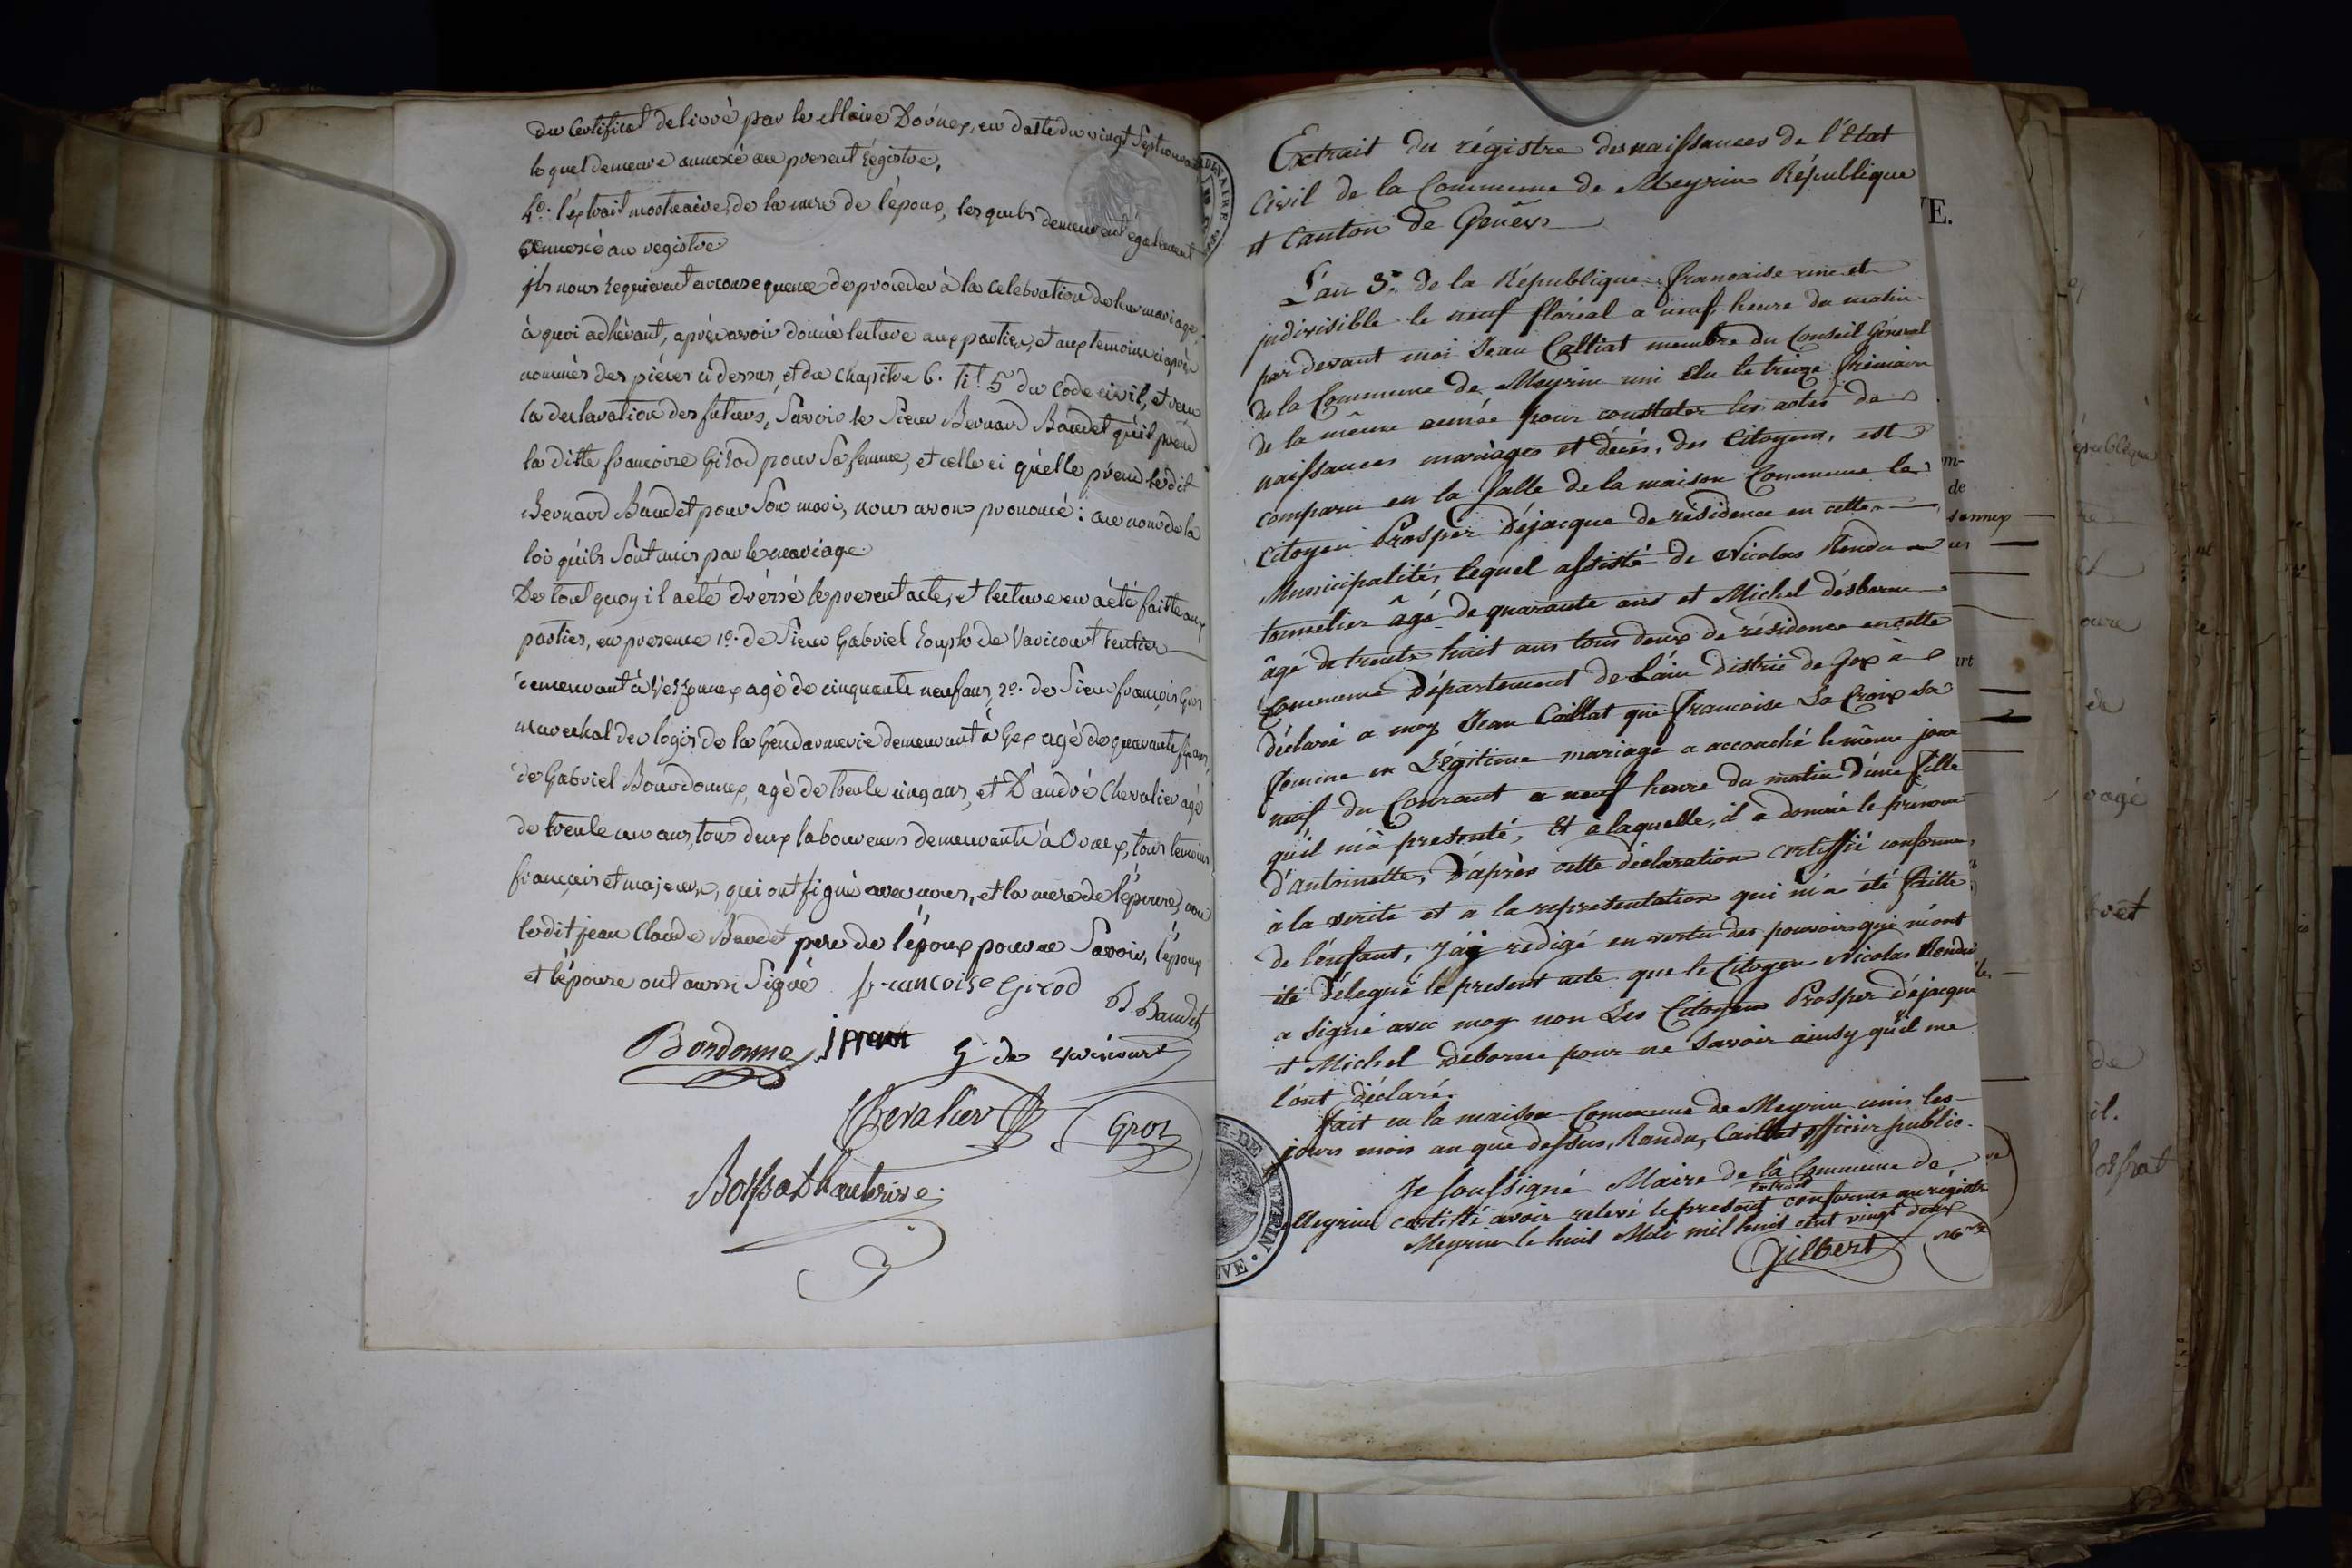 du Certificat délivré par le Maire D'ornex, en datte du vingt Sept
lequel demeure annexé au present Registre,
4º. l'extrait mortuaire de la mere de l'époux, lesquels demeurent également
annexé au registre
ils nous requierent en consequence de proceder à la celebration de leur mariage,
à quoi adhérant, après avoir donné lecture aux parties, et aux temoins ci après
nommés des pièces ci dessus, et du Chapitre 6. tit. 5 du Code civil, et reçu
la declaration des futurs, Savoir le Sieur Bernard Baudet qu'il prend
la ditte françoise Girod pour Sa femme, et celle ci qu'elle prend le dit
Bernard Baudet pour Son mari, nous avons prononcé : au nom de la
loi qu'ils Sont unis par le mariage.
De tout quoy il a été dréssé le present acte, et lecture en a été faitte aux
parties, en presence 1º. de Sieur Gabriel de Varicourt rentier
demeurant à agé de cinquante neuf ans, 2º. de Sieur françois Gros
marechal des logis de la Gendarmerie demeurant à Gex agé de quarante six ans,
de Gabriel Bourdonnex, agé de trente cinq ans, et D'andré Chevalier agé
de trente un ans, tous deux laboureurs demeurants à Ornex, tous temoins
français et majeurs, qui ont signé avec nous, et la mere de l'épouse, non
le dit jean Claude Baudet pere de l'époux pour ne Savoir, l'époux
et l'épouse ont aussi Signé francoise Girod
B Baudet
Bordonnex G de Varicourt
Chevalier Gros
Extrait du régistre des naissances de l'état
Civil de la Commune de Meyrin République
et Canton de Genève
L'an 3e de la République francaise une et
indivisible le neuf floréal a neuf heure du matin
par devant moi Jean Calliat membre du Conseil Général
de la Commune de Meyrin uni Elu le treize frimaire
de la même année pour constater les actes de
naissances mariages et décès, des Citoyens, est
comparu en la salle de la maison Commune le
Citoyen Prosper Déjacque de résidence en cette
Municipalité, lequel assisté de Nicolas Rendu
tonnélier âgé de quarante ans et Michel désborne
âgé de trente huit ans tous deux de résidence en cette
Commune Département de L'ain distric de Gex à
déclaré a moy Jean Caillat que Francoise La Croix sa
femme en Légitime mariage a accouché le même jour
neuf du Courant a neuf heure du matin d'une fille
qu'il m'à presenté, et à laquelle, il a donné le prénom
d'antoinette, D'après cette déclaration certiffié conforme,
à la vérité et a la representation qui m'a été faitte
de l'enfant, J'ai redigé en vertu des pouvoirs qui m'ont
été délegué le present acte que le Citoyen Nicolas Rendu
a signé avec moy non Les Citoyens Prosper Déjacque
et Michel deborne pour ne savoir ainsy qu'il me
l'ont déclaré.
fait en la maison Commune de Meyrin unis les
jours mois an que dessus, Randu, Caillat officier public.
Je soussigné Maire de la Commune de
Meyrin certiffié avoir relevé le present extrait conforme au régistre
Meyrin le huit Mai mil huit cent vingt deux
Gilbert